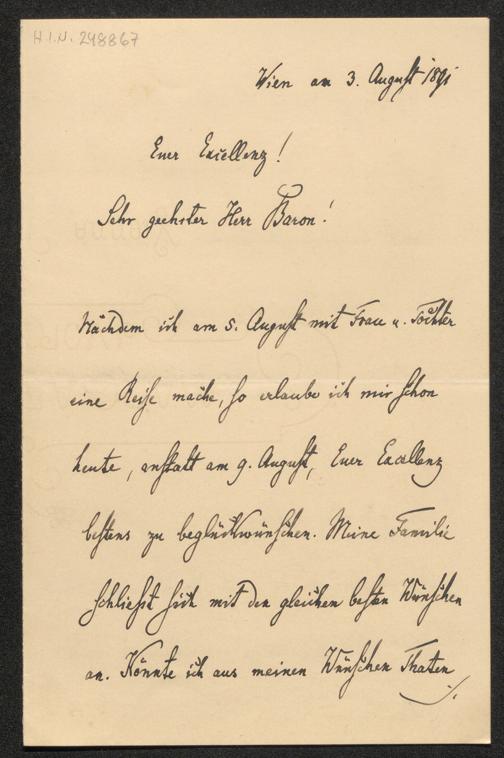 H.I.N. 248867
Wien am 3. August 1891
Euer Excellenz!
Sehr geehrter Herr Baron!
Nachdem ich am 5. August mit Frau u. Töchter
eine Reise mache, so erlaube ich mir schon
heute, anstatt am 9. August, Euer Excellenz
bestens zu beglückwünschen. Meine Familie
schließt sich mit den gleichen besten Wünschen
an. Könnte ich aus meinen Wünschen Thaten